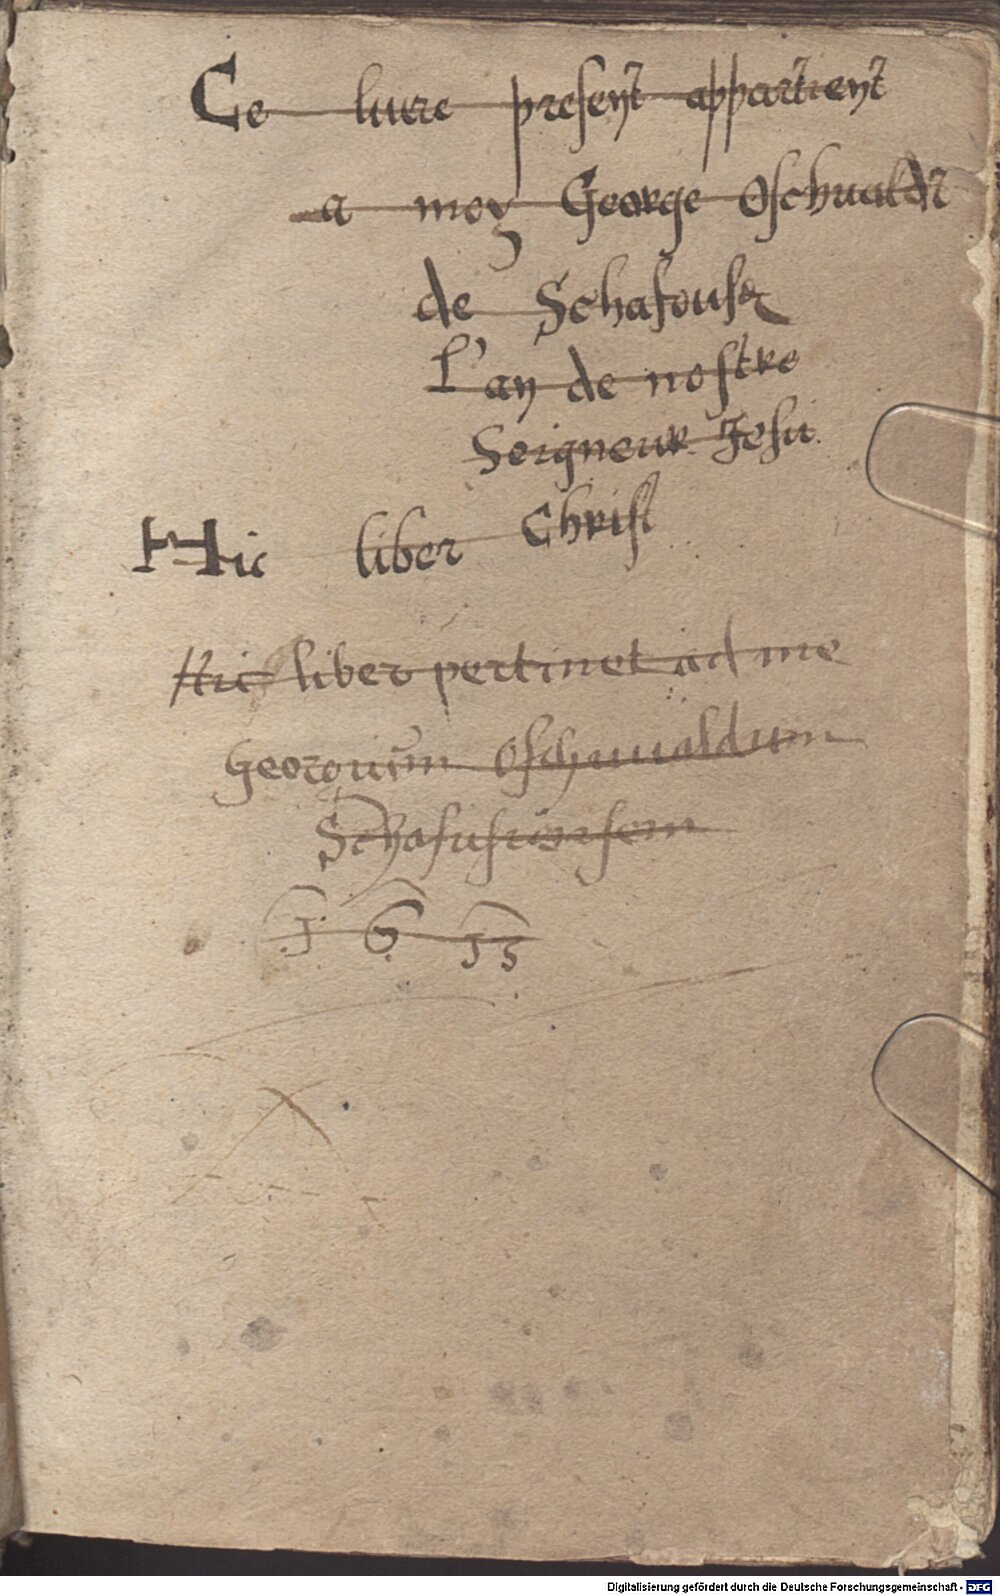 Ce livre present appartient
a moy George Oschvaldt
de Schafouse
L'an de nostre
Seigneur Jesu
Christ
Hic liber
Hic liber pertinet ad me
Georgium Oschwaldum
Schafusiensem
1 6 15
Digitalisierung gefördert durch die Deutsche Forschungsgemeinschaft - DFG